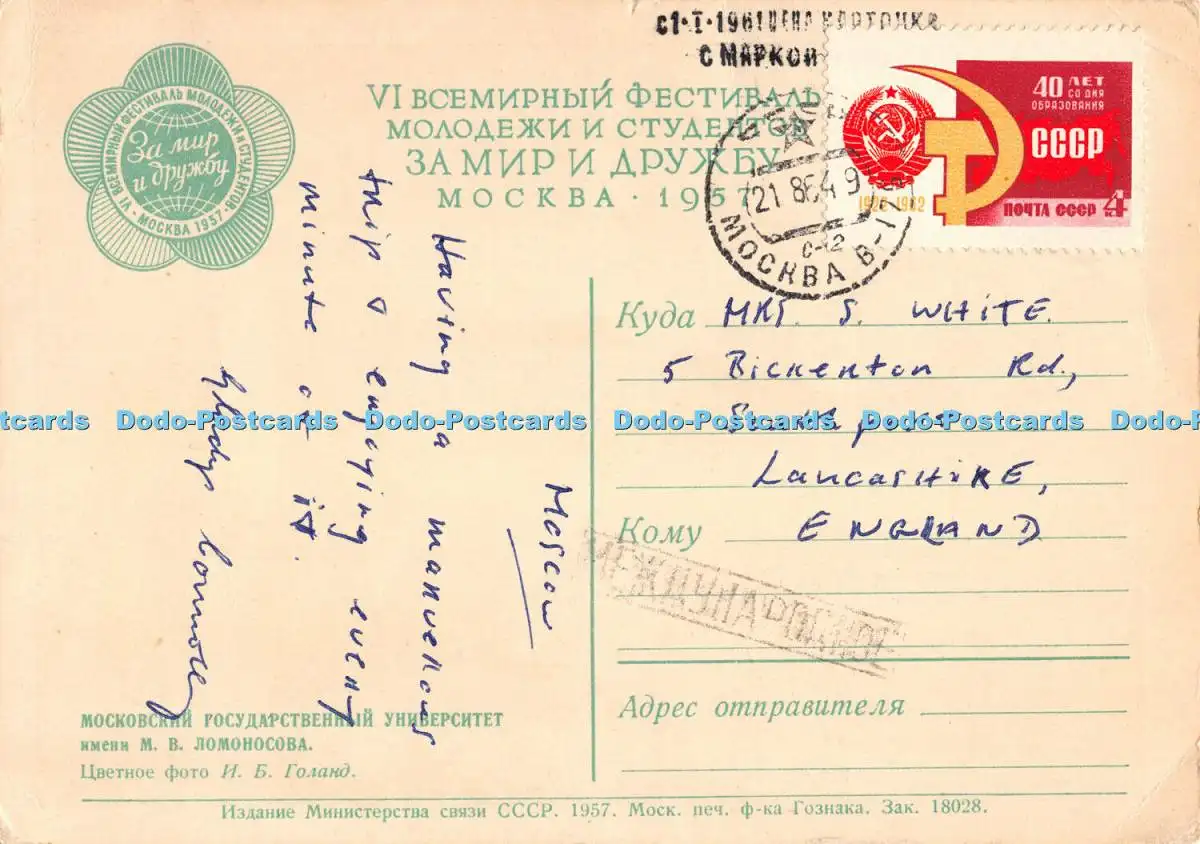 с 1·I·1961 ЦЕНА КАРТОЧКИ
С МАРКОЙ
VI ВСЕМИРНЫЙ ФЕСТИВАЛЬ МОЛОДЕЖИ И СТУДЕНТОВ
За мир
и дружбу
• МОСКВА 1957 •
VI ВСЕМИРНЫЙ ФЕСТИВАЛЬ
МОЛОДЕЖИ И СТУДЕНТОВ
ЗА МИР И ДРУЖБУ
МОСКВА · 1957
40 ЛЕТ
СО ДНЯ
ОБРАЗОВАНИЯ
СССР
1922-1962
ПОЧТА СССР 4
21 864 9
С-12
МОСКВА В-1
Moscow
Having a marvellous
trip & enjoying every
minute of it.
Gladys
Куда MRS. S. WHITE.
5 Bickerton Rd.,
Lancashire,
Кому ENGLAND
МЕЖДУНАРОДНОЕ
Адрес отправителя
МОСКОВСКИЙ ГОСУДАРСТВЕННЫЙ УНИВЕРСИТЕТ
имени М. В. ЛОМОНОСОВА.
Цветное фото И. Б. Голанд.
Издание Министерства связи СССР. 1957. Моск. печ. ф-ка Гознака. Зак. 18028.
Dodo-Postcards Dodo-Postcards Dodo-Postcards Dodo-Postcards Dodo-Postcards